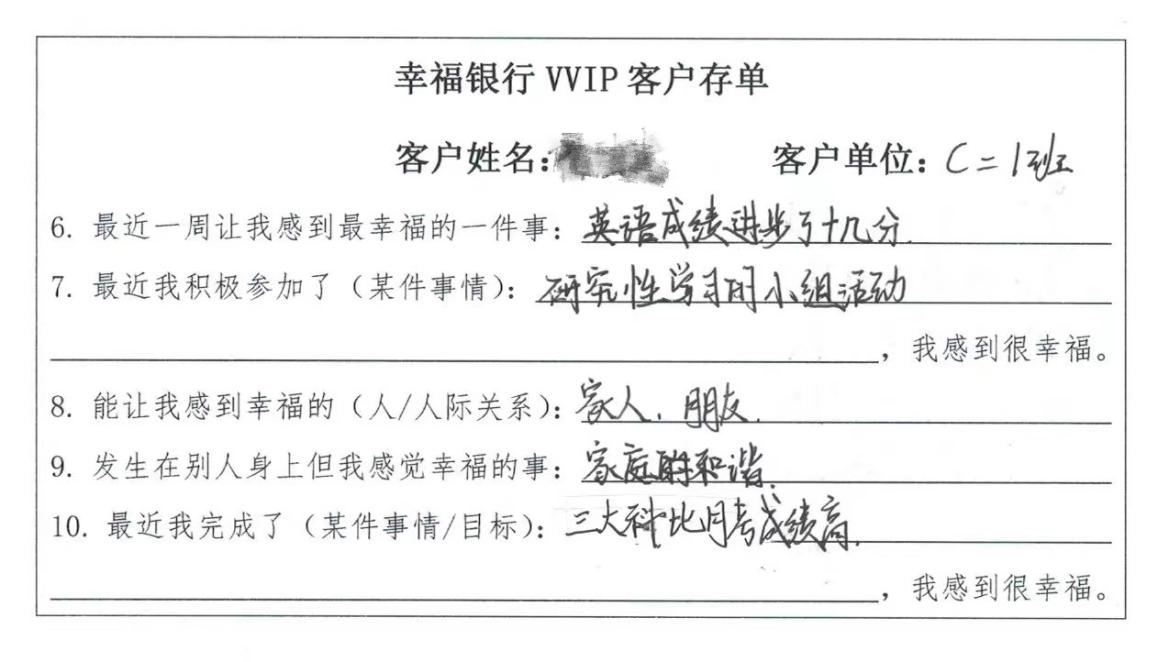 幸福银行 VVIP 客户存单
客户姓名： 客户单位：C二1班
6. 最近一周让我感到最幸福的一件事：英语成绩进步了十几分.
7. 最近我积极参加了（某件事情）：研究性学习的小组活动
，我感到很幸福。
8. 能让我感到幸福的（人/人际关系）：家人. 朋友.
9. 发生在别人身上但我感觉幸福的事：家庭的和谐.
10. 最近我完成了（某件事情/目标）：三大科比月考成绩高.
，我感到很幸福。